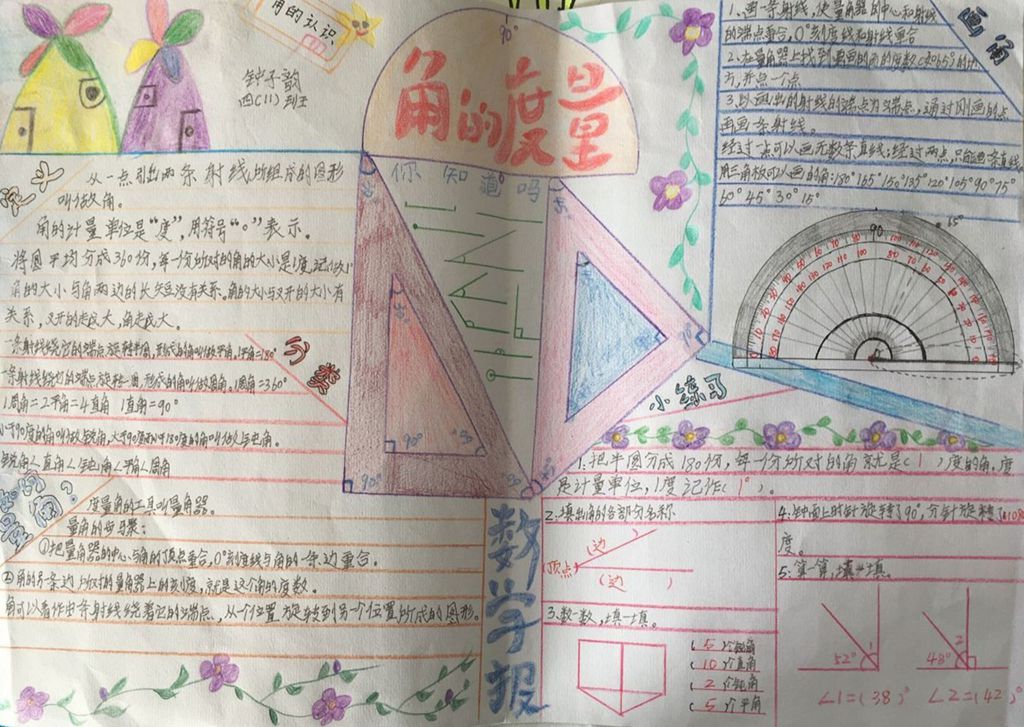 角的认识
钟子韵
四(11)班
90°
角的度量
你知道吗
定义
从一点引出两条射线所组成的图形
叫做角。
角的计量单位是“度”,用符号“°”表示。
将圆平均分成360份,每一份所对的角的大小是1度,记作1°
角的大小与角两边的长短没有关系,角的大小与叉开的大小有
关系,叉开的越大,角越大。
分类
一条射线绕它的端点旋转半周,形成的角叫做平角,1平角=180°
一条射线绕它的端点旋转一周,形成的角叫做周角,1周角=360°
1周角=2平角=4直角 1直角=90°
小于90度的角叫做锐角,大于90度而小于180度的角叫做钝角。
锐角<直角<钝角<平角<周角
如何量角?
度量角的工具叫量角器。
量角的步骤:
①把量角器的中心与角的顶点重合,0°刻度线与角的一条边重合。
②角的另一条边所对的量角器上的刻度,就是这个角的度数。
角可以看作由一条射线绕着它的端点,从一个位置旋转到另一个位置所成的图形。
90°
90°
数学手报
画角
1、画一条射线,使量角器的中心和射线
的端点重合,0°刻度线和射线重合
2、在量角器上找到要画的角的度数(如65°)的地
方,并点一个点
3、以画出的射线的端点为端点,通过刚画的点
再画一条射线。
经过一点可以画无数条直线;经过两点,只能画一条直线
用三角板可以画的角:180°165°150°135°120°105°90°75°
60°45°30°15°
65°
90
小练习
1、把半圆分成180份,每一份所对的角就是(1)度的角,度
是计量单位,1度记作(1°)。
2、填出角的各部分名称
(边)
(顶点)
(边)
3、数一数,填一填。
(5)个锐角
(10)个直角
(2)个钝角
(5)个平角
4、钟面上时针旋转了90°,分针旋转了
度。
5、算一算,填一填。
1
52°
∠1=(38)°
2
48°
∠2=(42)°